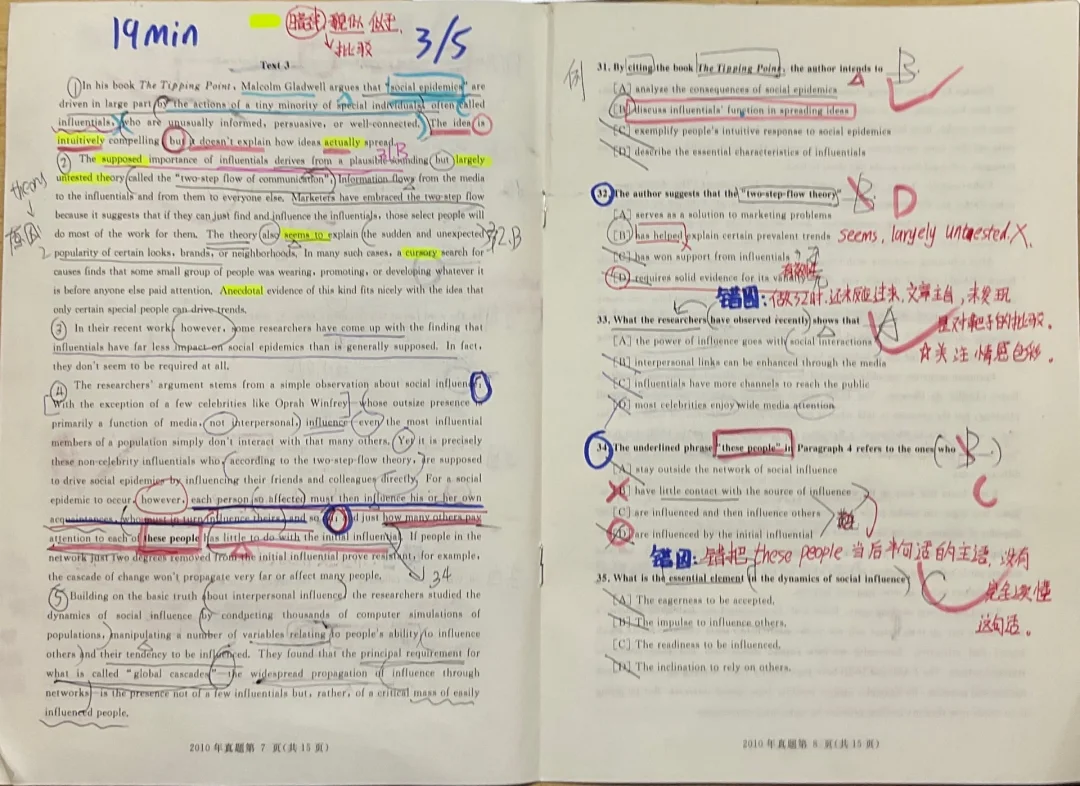 19min
暗线
貌似 似乎
批驳
3/5
Text 3
① In his book The Tipping Point, Malcolm Gladwell argues that "social epidemics" are
driven in large part by the actions of a tiny minority of special individuals, often called
influentials, who are unusually informed, persuasive, or well-connected. The idea is
intuitively compelling, but it doesn't explain how ideas actually spread.
31.B
② The supposed importance of influentials derives from a plausible-sounding but largely
untested theory called the "two-step flow of communication": Information flows from the media
to the influentials and from them to everyone else. Marketers have embraced the two-step flow
because it suggests that if they can just find and influence the influentials, those select people will
do most of the work for them. The theory also seems to explain the sudden and unexpected
32.B
popularity of certain looks, brands, or neighborhoods. In many such cases, a cursory search for
causes finds that some small group of people was wearing, promoting, or developing whatever it
is before anyone else paid attention. Anecdotal evidence of this kind fits nicely with the idea that
only certain special people can drive trends.
③ In their recent work, however, some researchers have come up with the finding that
influentials have far less impact on social epidemics than is generally supposed. In fact,
they don't seem to be required at all.
④ The researchers' argument stems from a simple observation about social influence:
With the exception of a few celebrities like Oprah Winfrey—whose outsize presence is
primarily a function of media, not interpersonal, influence—even the most influential
members of a population simply don't interact with that many others. Yet it is precisely
these non-celebrity influentials who, according to the two-step-flow theory, are supposed
to drive social epidemics by influencing their friends and colleagues directly. For a social
epidemic to occur, however, each person so affected must then influence his or her own
acquaintances, who must in turn influence theirs, and so on; and just how many others pay
attention to each of these people has little to do with the initial influential. If people in the
network just two degrees removed from the initial influential prove resistant, for example,
the cascade of change won't propagate very far or affect many people.
34
⑤ Building on the basic truth about interpersonal influence, the researchers studied the
dynamics of social influence by conducting thousands of computer simulations of
populations, manipulating a number of variables relating to people's ability to influence
others and their tendency to be influenced. They found that the principal requirement for
what is called "global cascades"—the widespread propagation of influence through
networks—is the presence not of a few influentials but, rather, of a critical mass of easily
influenced people.
2010 年真题第 7 页(共 15 页)
例
31. By citing the book The Tipping Point, the author intends to B
[A] analyze the consequences of social epidemics
[B] discuss influentials' function in spreading ideas
[C] exemplify people's intuitive response to social epidemics
[D] describe the essential characteristics of influentials
32. The author suggests that the "two-step-flow theory" B D
[A] serves as a solution to marketing problems
[B] has helped explain certain prevalent trends seems, largely untested X.
[C] has won support from influentials
[D] requires solid evidence for its validity
有效性
错因: 做32时, 还未反应过来, 文章主旨, 未发现
是对靶子的批驳.
☆关注情感色彩.
33. What the researchers have observed recently shows that A
[A] the power of influence goes with social interactions
[B] interpersonal links can be enhanced through the media
[C] influentials have more channels to reach the public
[D] most celebrities enjoy wide media attention
34. The underlined phrase "these people" in Paragraph 4 refers to the ones who B
C
[A] stay outside the network of social influence
[B] have little contact with the source of influence
[C] are influenced and then influence others
[D] are influenced by the initial influential
错因: 错把these people当后半句话的主语, 没有
完全读懂
这句话.
35. What is the essential element in the dynamics of social influence? C
[A] The eagerness to be accepted.
[B] The impulse to influence others.
[C] The readiness to be influenced.
[D] The inclination to rely on others.
2010 年真题第 8 页(共 15 页)